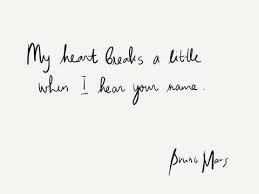 My heart breaks a little
when I hear your name.
Bruno Mars